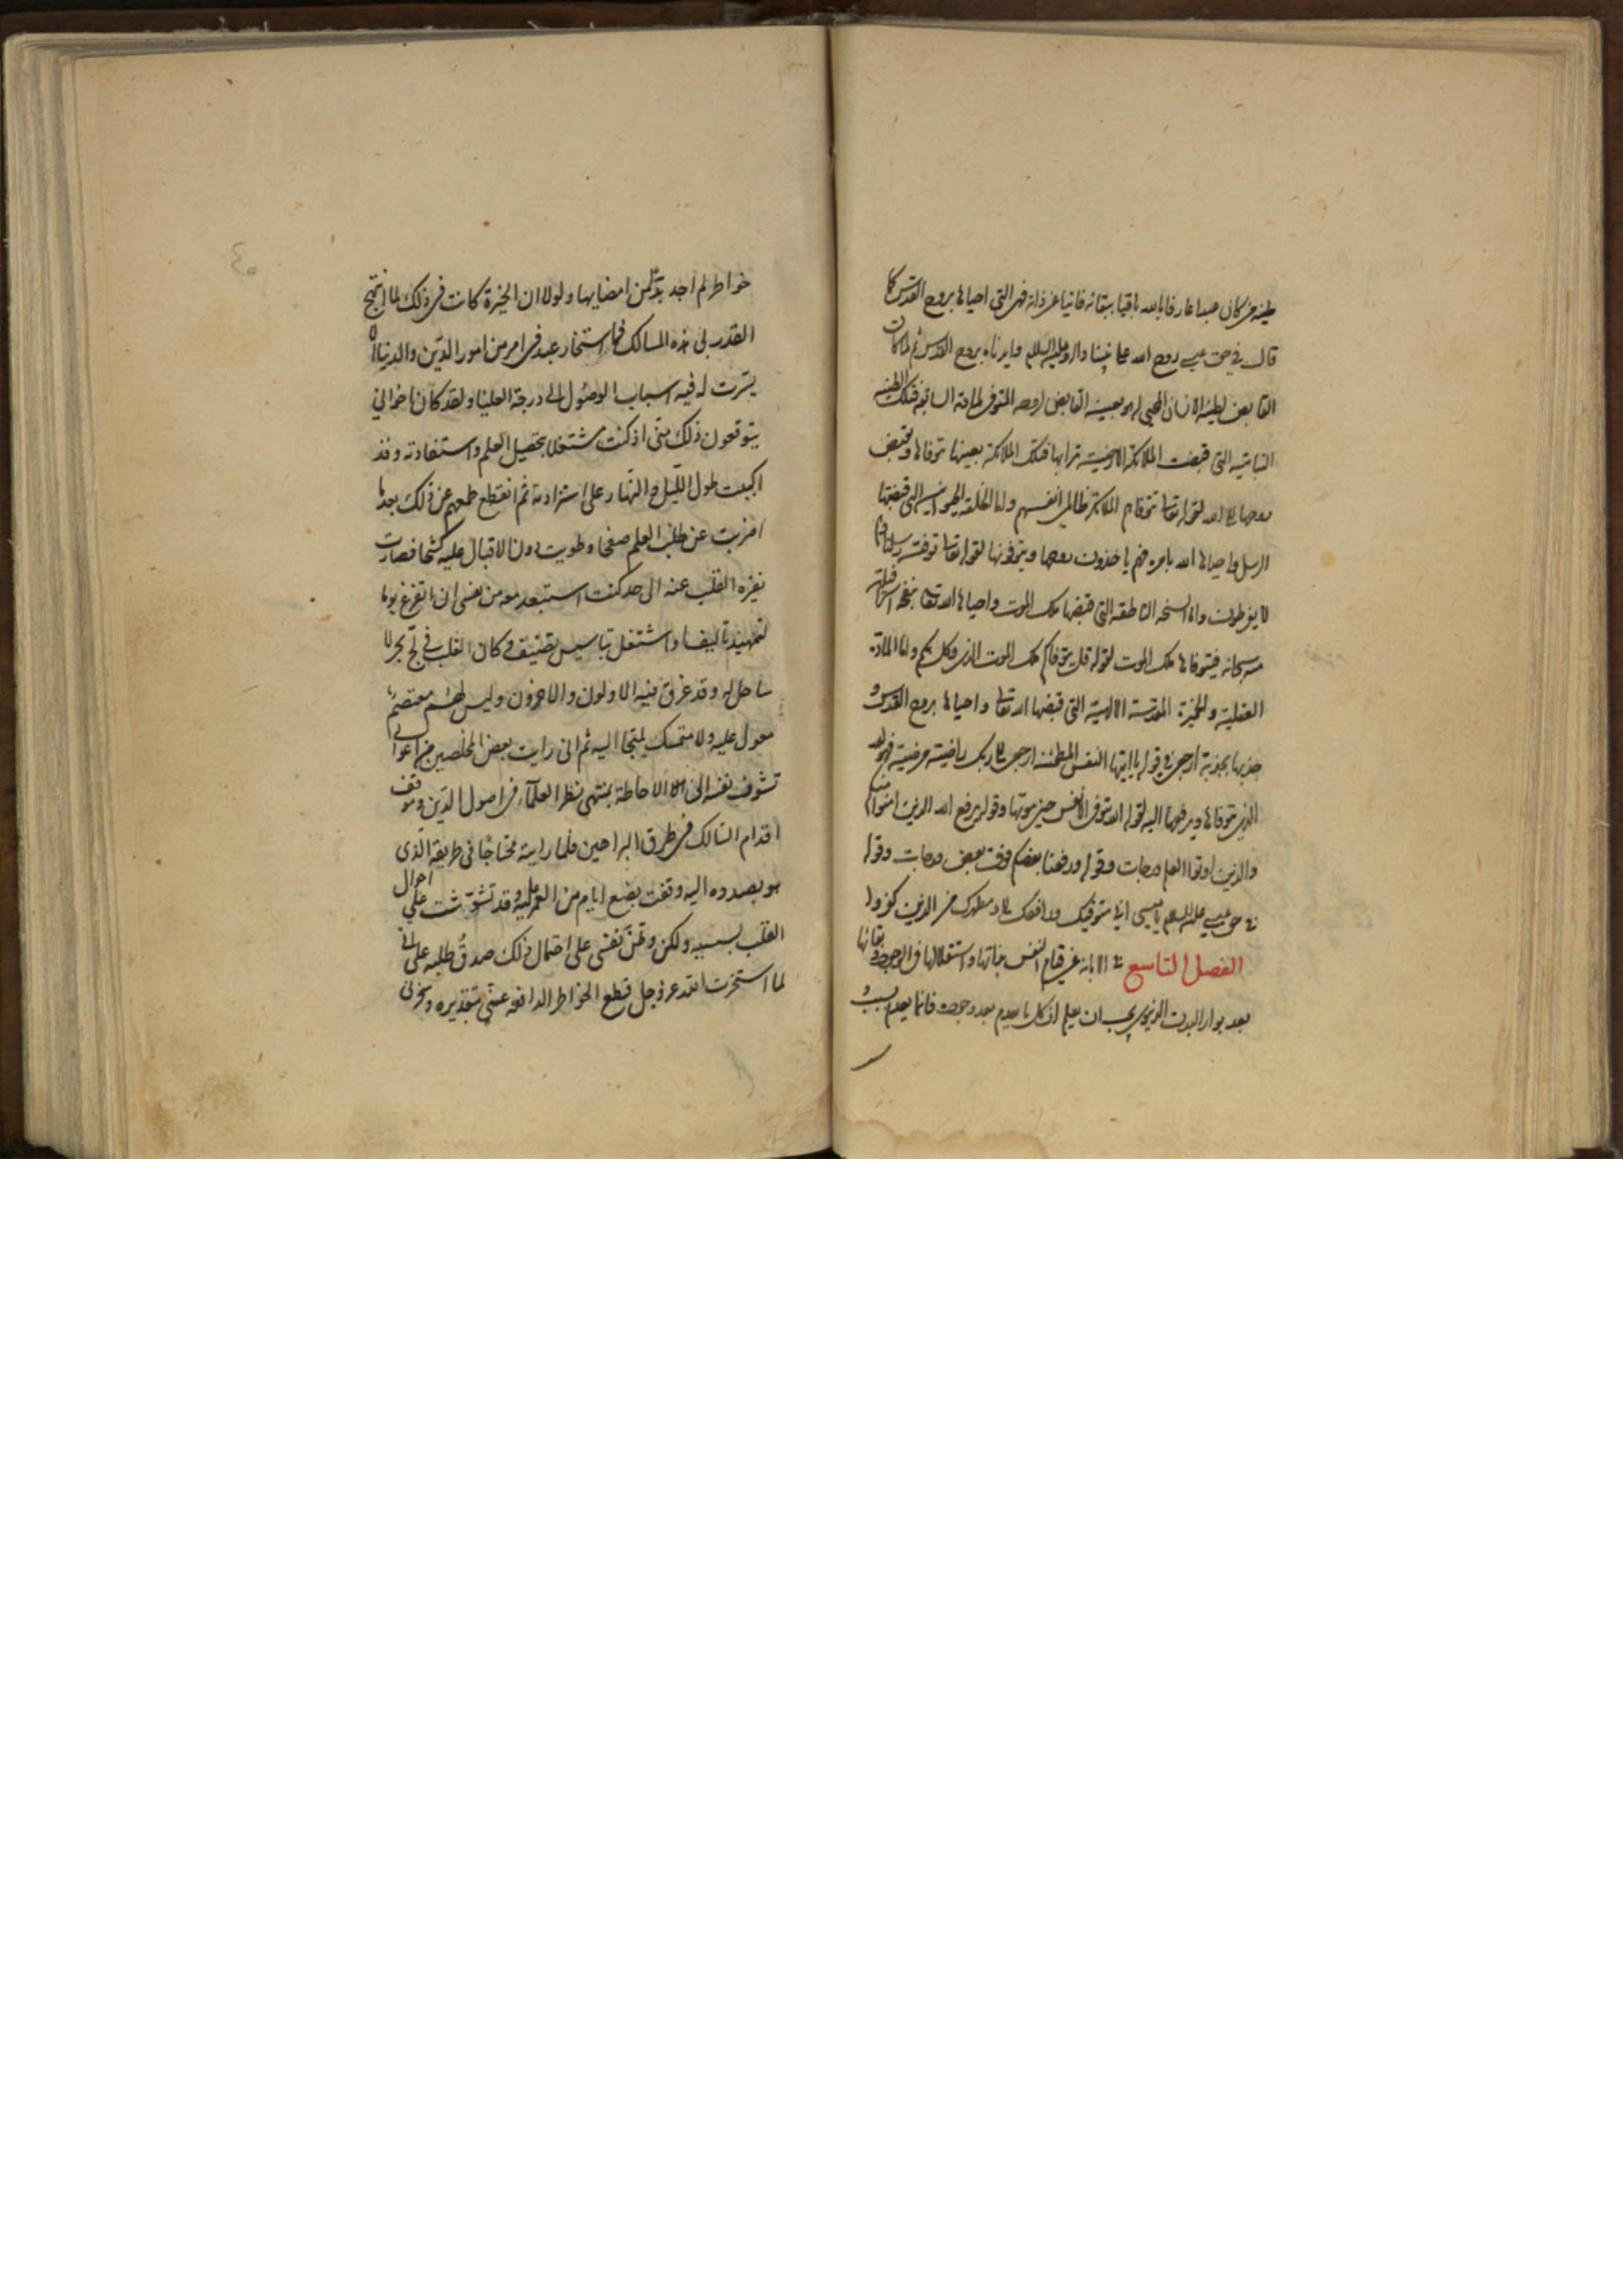 طينة من كان عبدا عارفا بالله باقيا ببقائه فانيا عن ذاته فهي التي احياها بروح القدس كما
قال في حق عيسى روح الله على نبينا وآله وعليه السلام وايدناه بروح القدس ثم لما كان
القابض لطينة الانسان المحيي له هو بعينه القابض لروحه المتوفى لها فتلك الطينة
النباتية التي قبضت الملائكة الارضية ترابها فتلك الملائكة بعينها توفاها ويقبض
روحها الى الله لقوله تعالى توفاهم الملائكة ظالمي انفسهم واما الحيوانية التي قبضها
الرسل واحياها الله بامره فهم ياخذون روحها ويتوفونها لقوله تعالى توفته رسلنا وهم
لا يفرطون واما النسخة الناطقة التي قبضها ملك الموت واحياها الله تعالى بنفخة
منه سبحانه فيتوفاها ملك الموت لقوله قل يتوفاكم ملك الموت الذي وكل بكم واما المادة
العقلية والخميرة المقدسة الالهية التي قبضها الله تعالى واحياها بروح القدس و
جذبها بجذبة ارجعي في قوله يا ايتها النفس المطمئنة ارجعي الى ربك راضية مرضية فهو الله
الذي توفاها ويرفعها اليه لقوله الله يتوفى الانفس حين موتها وقوله يرفع الله الذين امنوا منكم
والذين اوتوا العلم درجات وقوله ورفعنا بعضهم فوق بعض درجات وقوله
في حق عيسى عليه السلام يا عيسى اني متوفيك ورافعك الي ومطهرك من الذين كفروا
الفصل التاسع في الابانة عن قوام النفس بذاتها واستقلالها في الوجود وبقائها
بعد بوار البدن الدنيوي يجب ان يعلم ان كل ما يعدم بعد وجوده فانما يعدم بسبب و
٤٥
خواطر لم اجد بدّا من امضايها ولولا ان الخيرة كانت في ذلك لما انتهج
القدر بي هذه المسالك فما استخار عبد في امر من امور الدين والدنيا الا
يسّرت له فيه اسباب الوصول الى درجة العليا ولقد كان اخواني
يتوقعون ذلك منى اذ كنت مشتغلا بتحصيل العلم واستفادته وقد
اكببت طول الليل والنهار على استزادته ثم انقطع طمعهم عن ذلك بعد ما
اضربت عن طلب العلم صفحا وطويت دون الاقبال عليه كشحا فصارت
نفرة القلب عنه الى حد كنت استبعد معه من نفسي ان اتفرغ يوما
لتمهيد تاليف او اشتغل بتاسيس تصنيف وكان القلب في لج بحر لا
ساحل له وقد غرق فيه الاولون والاخرون وليس لهم معتصم
معول عليه ولا متمسك يلتجا اليه ثم انى رايت بعض المخلصين من اخواني
تشوف نفسه الى الاحاطة بمنتهى نظر العلماء في اصول الدين وموقف
اقدام السالك في طرق البراهين فلما رايته محتاجًا في طريقه الذى
هو بصدده اليه وقفت بضع ايام من العمر عليه وقد تشوّشت علي احوال
القلب بسببه ولكن وطّن نفسى على احتمال ذلك صدقُ طلبه على انى
لما استخرت الله عز وجل قطع الخواطر الدافعة عنى بتقديره